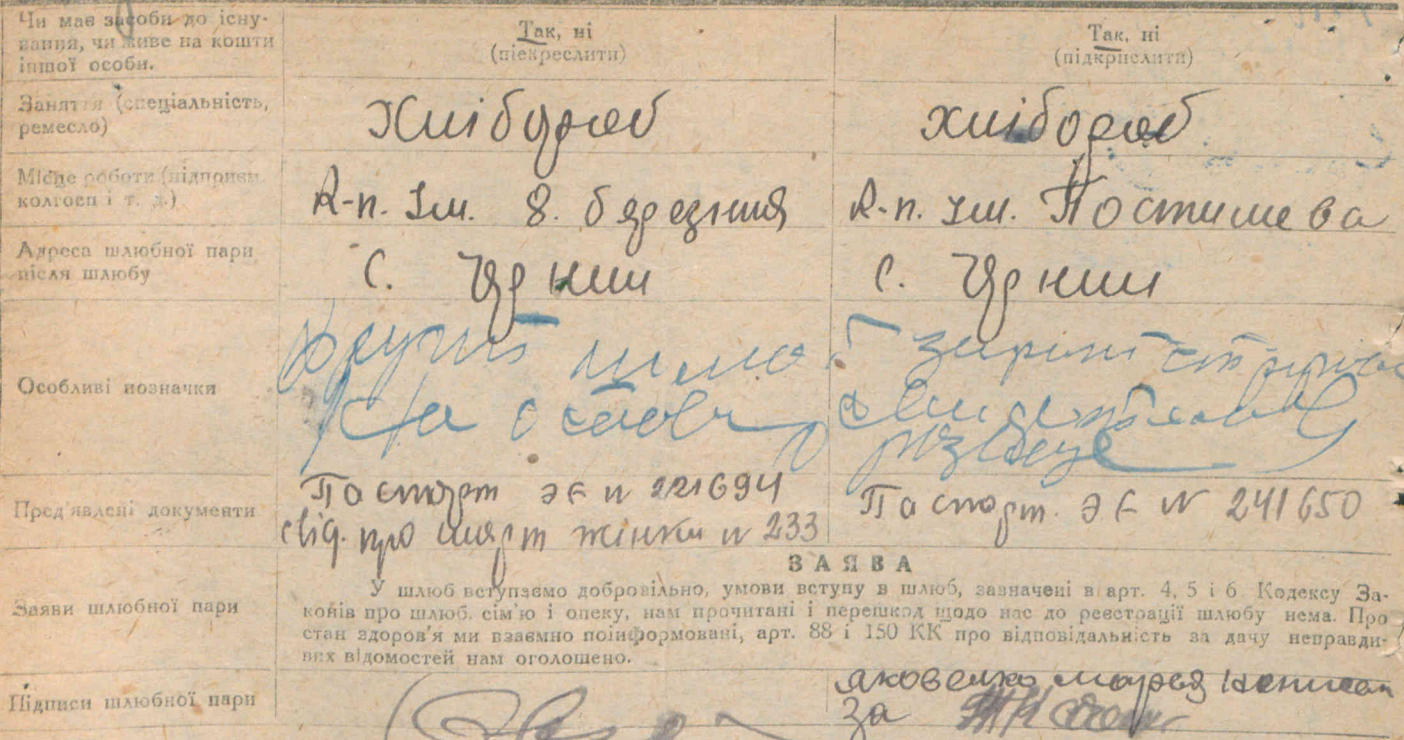 Чи має засоби до існу-
вання, чи живе на кошти
іншої особи.
Так, ні
(піекреслити)
Так, ні
(підкрислити)
Заняття (спеціальність,
ремесло)
Хлібороб
хлібороб
Місце роботи (підприєм.
колгосп і т. д.)
К-п. Ім. 8. березния
К-п. Ім. Постишева
Адреса шлюбної пари
після шлюбу
С.
С.
Особливі позначки
Другий шлюб
На основ
Пред'явлені документи
Паспорт ЭЄ N 221694
свід. про смерт жінки N 233
Паспорт. ЭЄ N 241650
Заяви шлюбної пари
ЗАЯВА
У шлюб вступаємо добровільно, умови вступу в шлюб, зазначені в арт. 4, 5 і 6 Кодексу За-
конів про шлюб, сім'ю і опеку, нам прочитані і перешкод щодо нас до реєстрації шлюбу нема. Про
стан здоров'я ми взаємно поінформовані, арт. 88 і 150 КК про відповідальність за дачу неправди-
вих відомостей нам оголошено.
Підписи шлюбної пари
Яковенко Марія
за